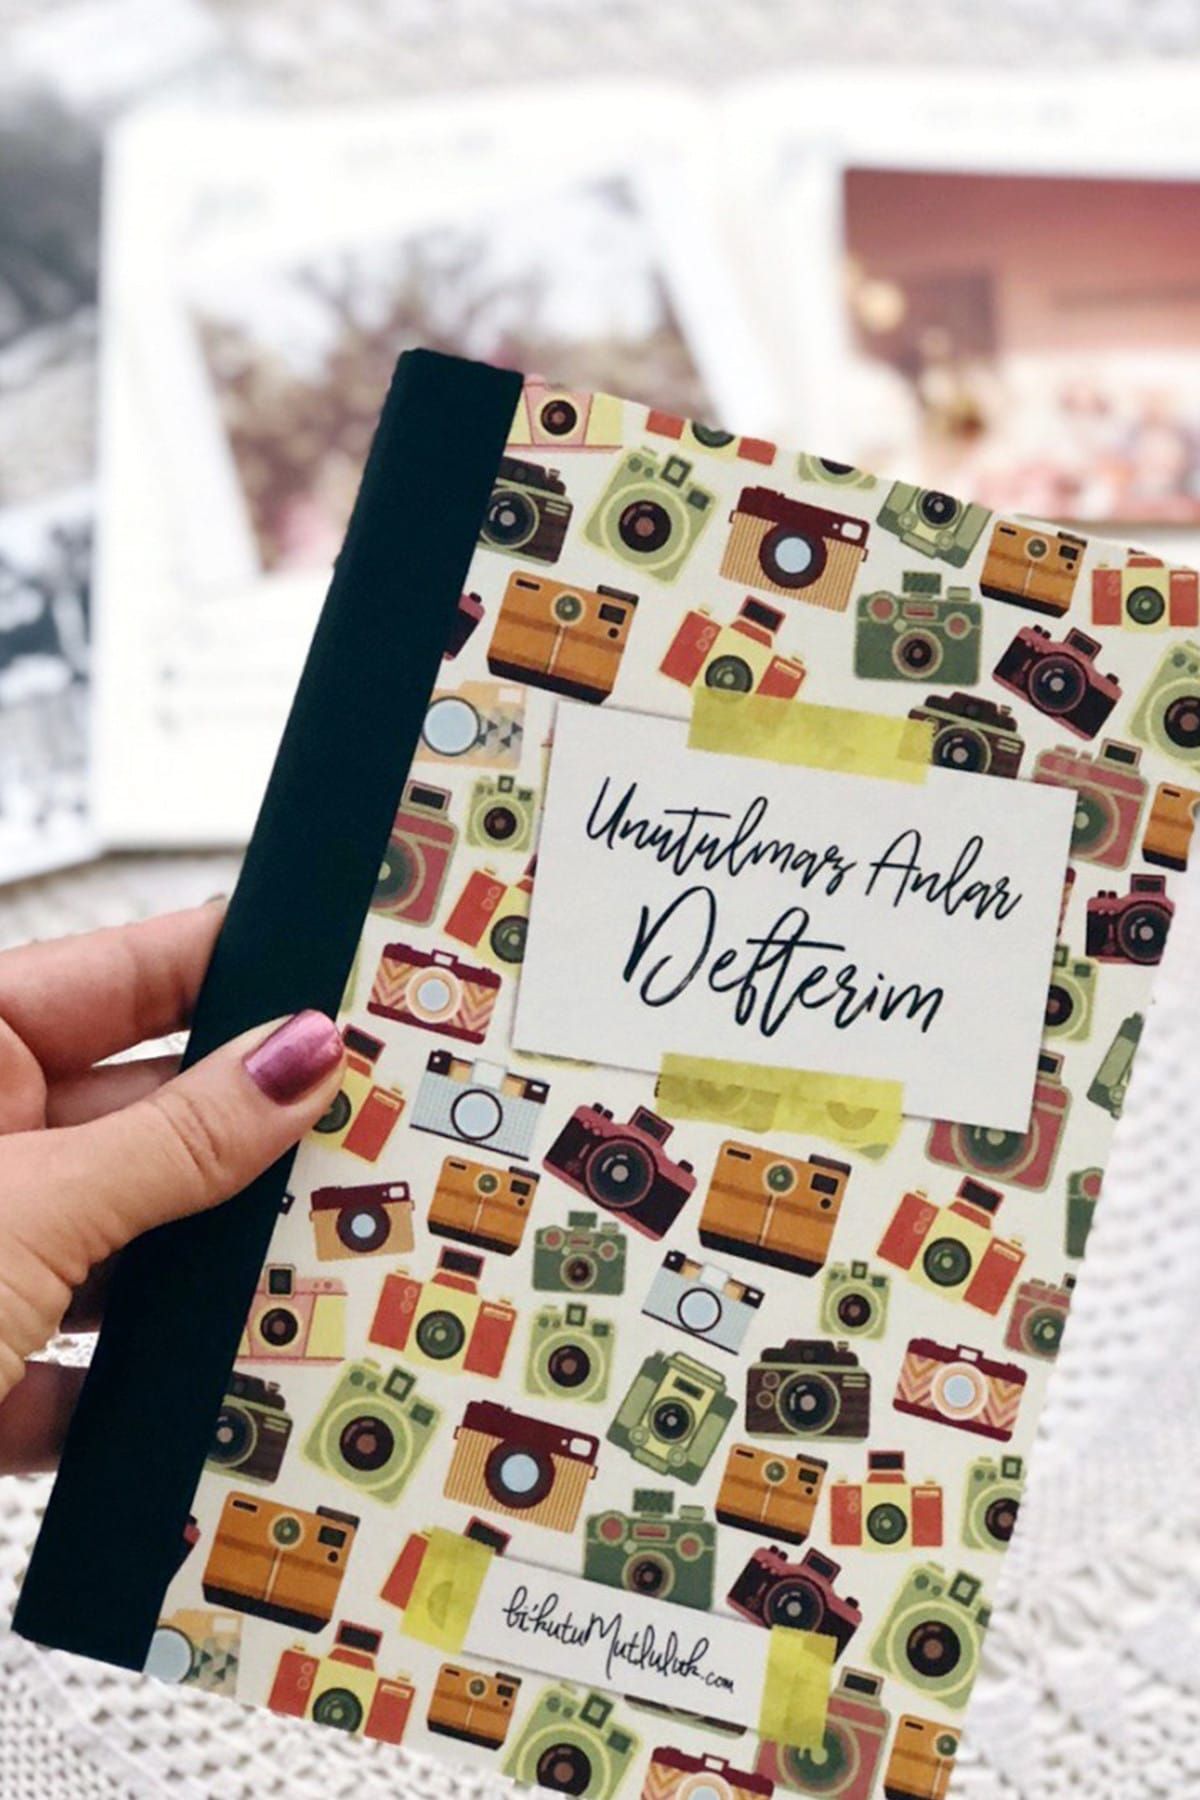 Unutulmaz Anlar
Defterim
bi'kutuMutluluk.com